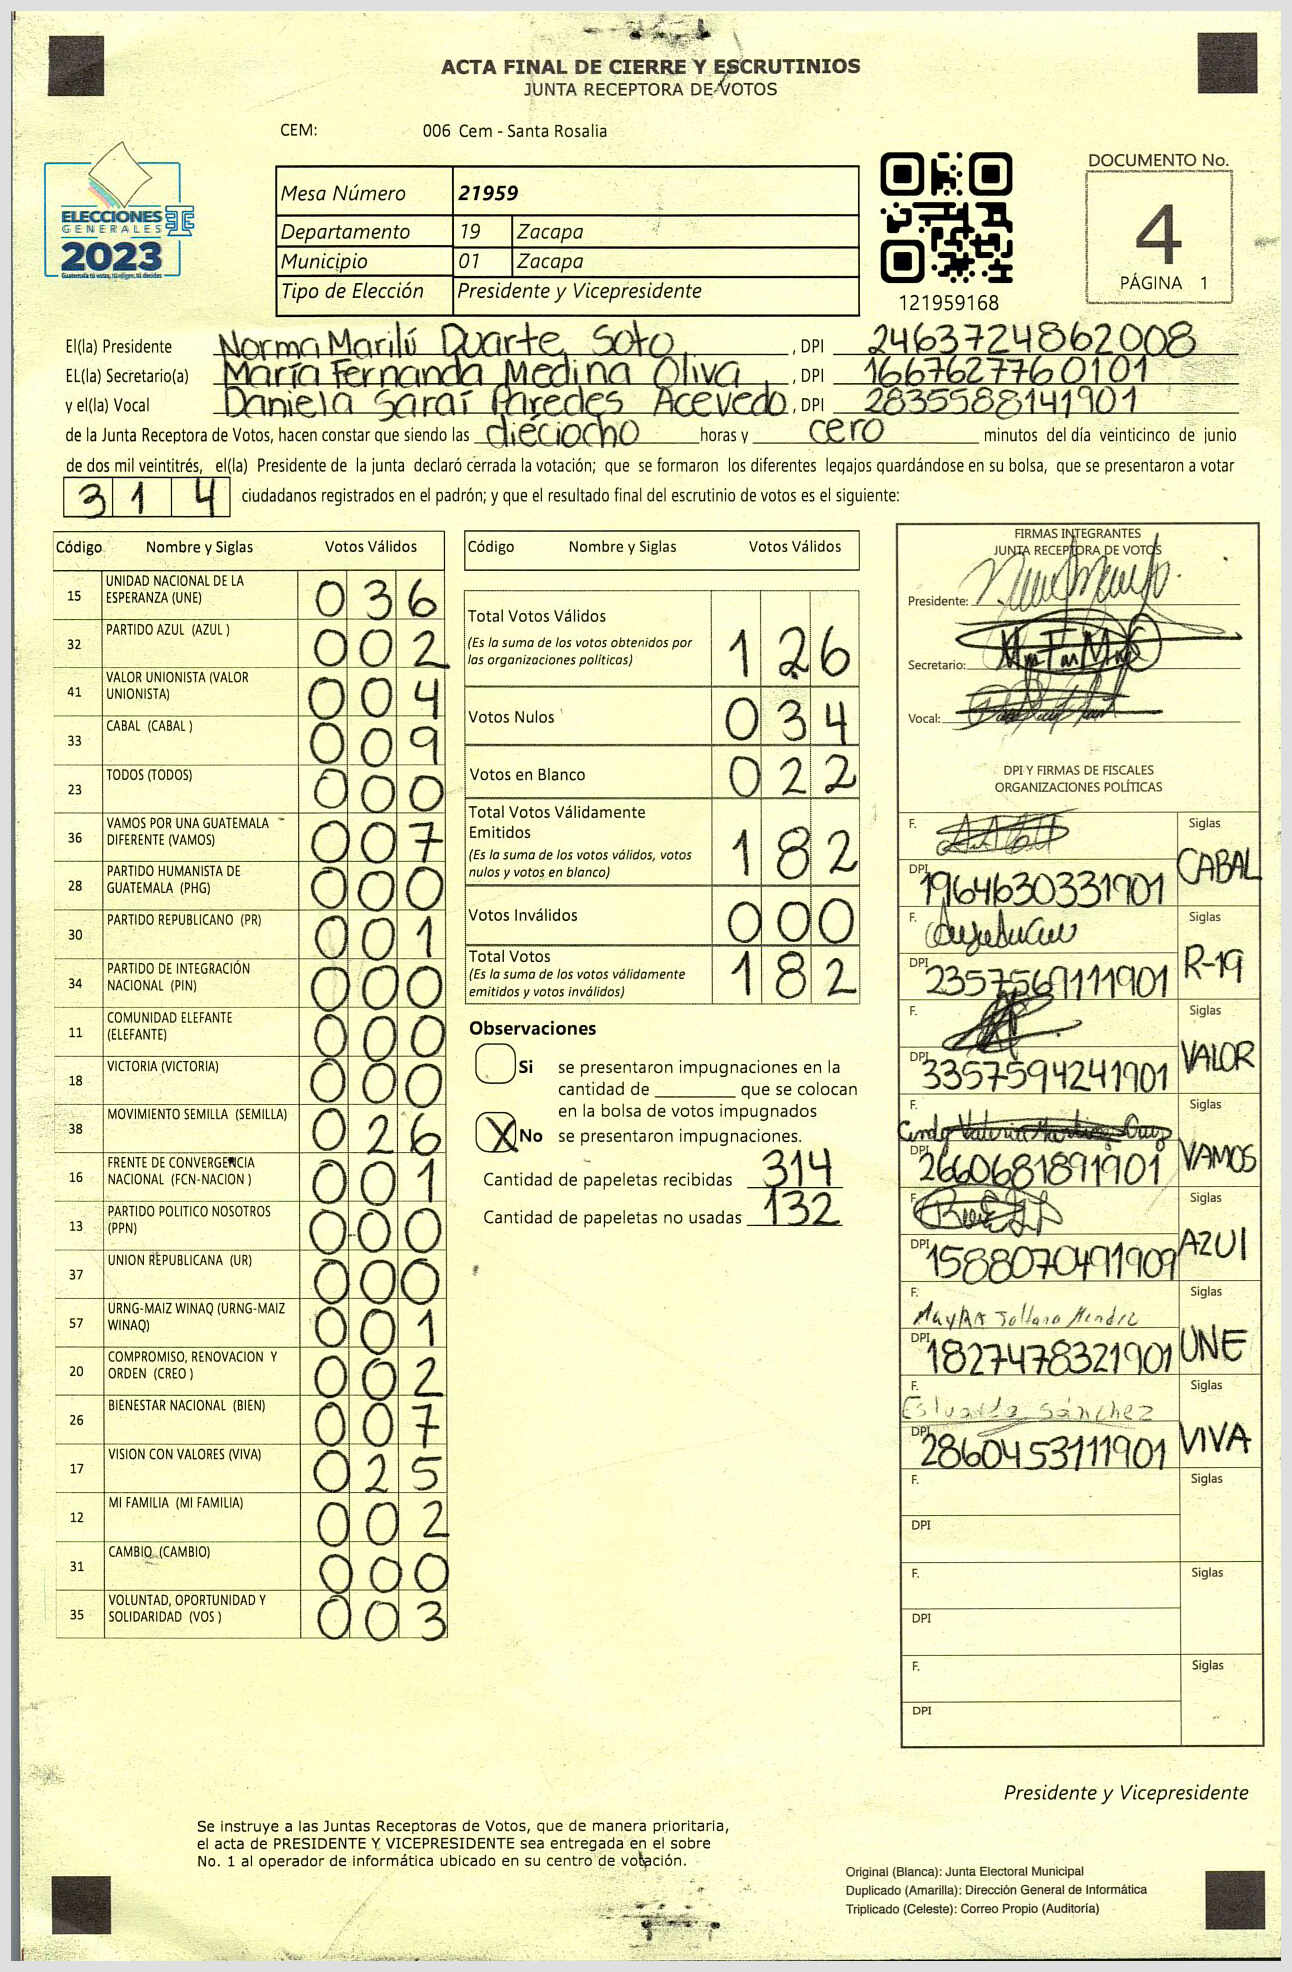 ACTA FINAL DE CIERRE Y ESCRUTINIOS
JUNTA RECEPTORA DE VOTOS
CEM: 006 Cem - Santa Rosalia
ELECCIONES
GENERALES
2023
Guatemala tú votas, tú eliges, tú decides
Mesa Número 21959
Departamento 19 Zacapa
Municipio 01 Zacapa
Tipo de Elección Presidente y Vicepresidente
121959168
DOCUMENTO No.
4
PÁGINA 1
El(la) Presidente Norma Marilú Duarte Soto , DPI 2463724862008
EL(la) Secretario(a) María Fernanda Medina Oliva , DPI 1667627760101
y el(la) Vocal Daniela Saraí Paredes Acevedo , DPI 2835588141901
de la Junta Receptora de Votos, hacen constar que siendo las dieciocho horas y cero minutos del día veinticinco de junio
de dos mil veintitrés, el(la) Presidente de la junta declaró cerrada la votación; que se formaron los diferentes legajos guardándose en su bolsa, que se presentaron a votar
314 ciudadanos registrados en el padrón; y que el resultado final del escrutinio de votos es el siguiente:
Código Nombre y Siglas Votos Válidos
15 UNIDAD NACIONAL DE LA ESPERANZA (UNE) 036
32 PARTIDO AZUL (AZUL ) 002
41 VALOR UNIONISTA (VALOR UNIONISTA) 004
33 CABAL (CABAL ) 009
23 TODOS (TODOS) 000
36 VAMOS POR UNA GUATEMALA DIFERENTE (VAMOS) 007
28 PARTIDO HUMANISTA DE GUATEMALA (PHG) 000
30 PARTIDO REPUBLICANO (PR) 001
34 PARTIDO DE INTEGRACIÓN NACIONAL (PIN) 000
11 COMUNIDAD ELEFANTE (ELEFANTE) 000
18 VICTORIA (VICTORIA) 000
38 MOVIMIENTO SEMILLA (SEMILLA) 026
16 FRENTE DE CONVERGENCIA NACIONAL (FCN-NACION ) 001
13 PARTIDO POLITICO NOSOTROS (PPN) 000
37 UNION REPUBLICANA (UR) 000
57 URNG-MAIZ WINAQ (URNG-MAIZ WINAQ) 001
20 COMPROMISO, RENOVACION Y ORDEN (CREO ) 002
26 BIENESTAR NACIONAL (BIEN) 007
17 VISION CON VALORES (VIVA) 025
12 MI FAMILIA (MI FAMILIA) 002
31 CAMBIO (CAMBIO) 000
35 VOLUNTAD, OPORTUNIDAD Y SOLIDARIDAD (VOS ) 003
Código Nombre y Siglas Votos Válidos
Total Votos Válidos 126
(Es la suma de los votos obtenidos por
las organizaciones políticas)
Votos Nulos 034
Votos en Blanco 022
Total Votos Válidamente
Emitidos 182
(Es la suma de los votos válidos, votos
nulos y votos en blanco)
Votos Inválidos 000
Total Votos 182
(Es la suma de los votos válidamente
emitidos y votos inválidos)
Observaciones
Si se presentaron impugnaciones en la
cantidad de ________ que se colocan
en la bolsa de votos impugnados
X No se presentaron impugnaciones.
Cantidad de papeletas recibidas 314
Cantidad de papeletas no usadas 132
FIRMAS INTEGRANTES
JUNTA RECEPTORA DE VOTOS
Presidente:
Secretario:
Vocal:
DPI Y FIRMAS DE FISCALES
ORGANIZACIONES POLÍTICAS
F. Siglas
DPI 1964630331901 CABAL
F. Siglas
DPI 2357569111901 R-19
F. Siglas
DPI 3357594241901 VALOR
F. Cindy Valeria Martínez Cruz Siglas
DPI 2660681891901 VAMOS
F. Siglas
DPI 1588070491909 AZUl
F. Siglas
DPI 1827478321901 UNE
F. Estuardo Sánchez Siglas
DPI 2860453111901 VIVA
F. Siglas
DPI
F. Siglas
DPI
F. Siglas
DPI
Presidente y Vicepresidente
Se instruye a las Juntas Receptoras de Votos, que de manera prioritaria,
el acta de PRESIDENTE Y VICEPRESIDENTE sea entregada en el sobre
No. 1 al operador de informática ubicado en su centro de votación.
Original (Blanca): Junta Electoral Municipal
Duplicado (Amarilla): Dirección General de Informática
Triplicado (Celeste): Correo Propio (Auditoría)